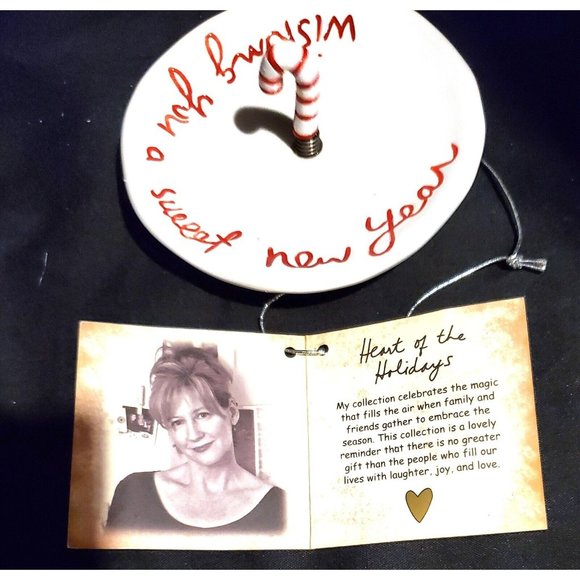 wishing you
a sweet new year
Heart of the
Holidays
My collection celebrates the magic
that fills the air when family and
friends gather to embrace the
season. This collection is a lovely
reminder that there is no greater
gift than the people who fill our
lives with laughter, joy, and love.